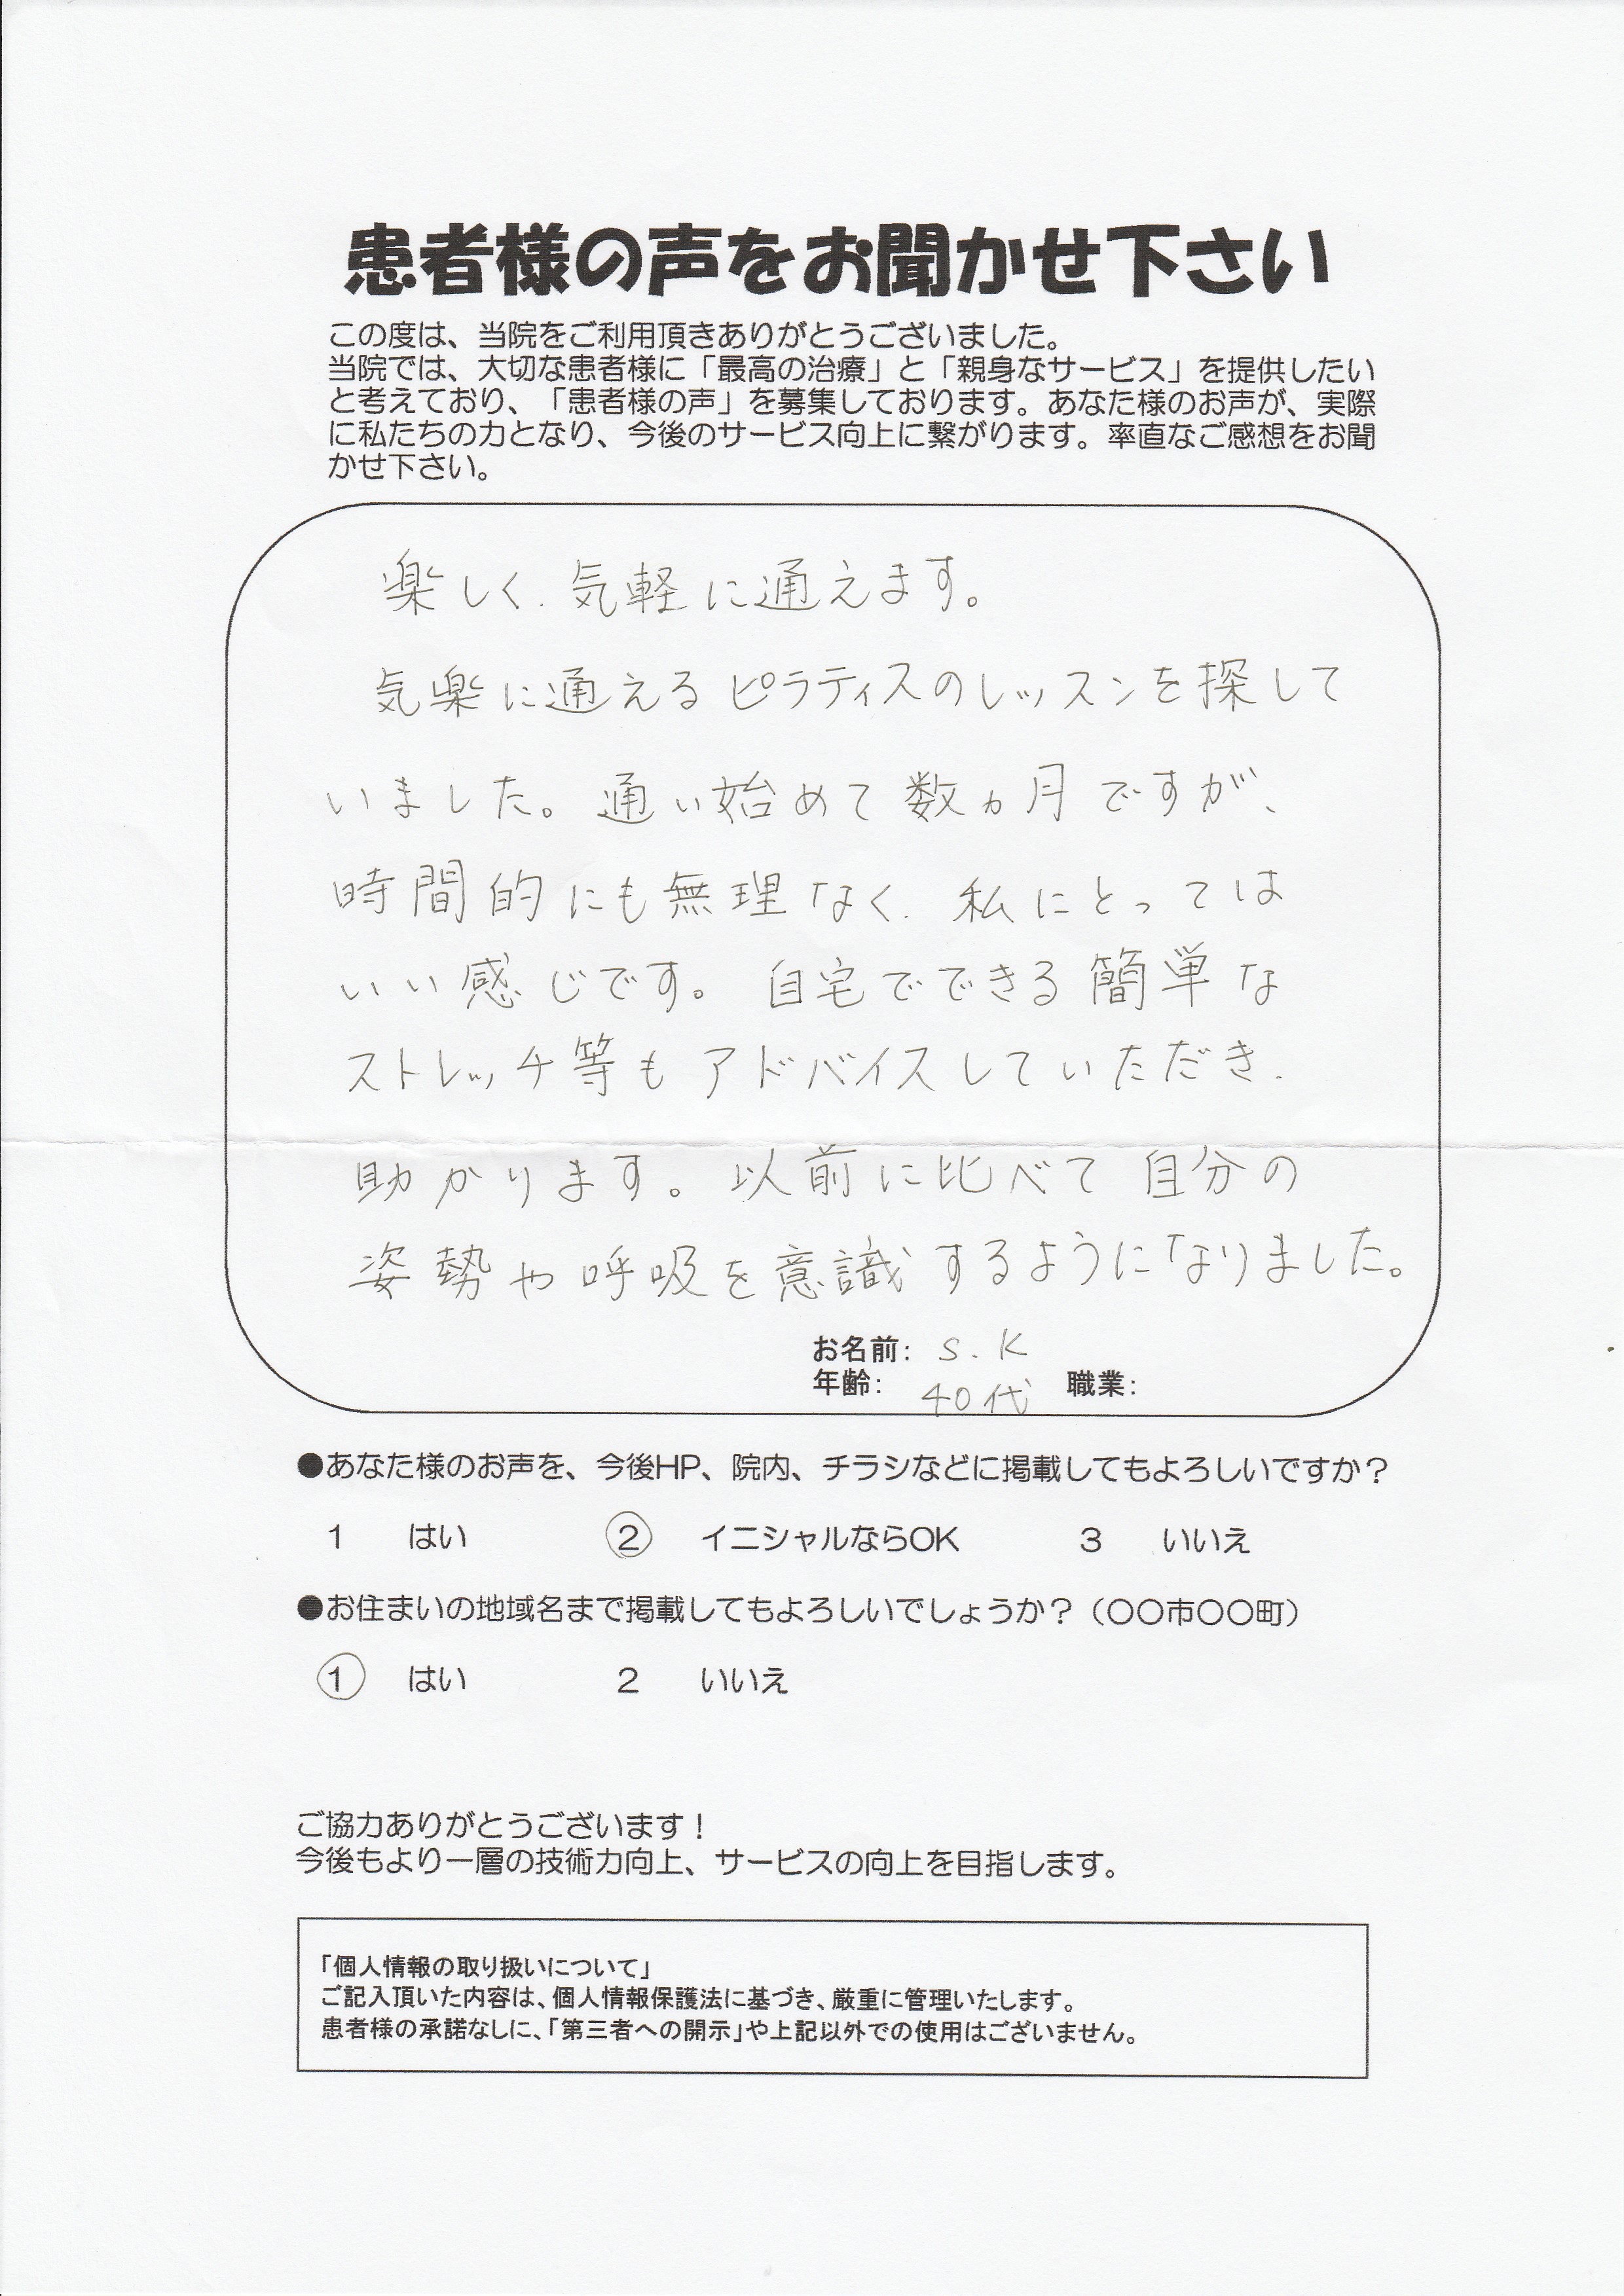 患者様の声をお聞かせ下さい
この度は、当院をご利用頂きありがとうございました。
当院では、大切な患者様に「最高の治療」と「親身なサービス」を提供したい
と考えており、「患者様の声」を募集しております。あなた様のお声が、実際
に私たちの力となり、今後のサービス向上に繋がります。率直なご感想をお聞
かせ下さい。
楽しく、気軽に通えます。
気楽に通えるピラティスのレッスンを探して
いました。通い始めて数ヵ月ですが、
時間的にも無理なく、私にとっては
いい感じです。自宅でできる簡単な
ストレッチ等もアドバイスしていただき、
助かります。以前に比べて自分の
姿勢や呼吸を意識するようになりました。
お名前: S.K
年齢: 40代 職業:
●あなた様のお声を、今後HP、院内、チラシなどに掲載してもよろしいですか？
1 はい ② イニシャルならOK 3 いいえ
●お住まいの地域名まで掲載してもよろしいでしょうか？（〇〇市〇〇町）
① はい 2 いいえ
ご協力ありがとうございます！
今後もより一層の技術力向上、サービスの向上を目指します。
「個人情報の取り扱いについて」
ご記入頂いた内容は、個人情報保護法に基づき、厳重に管理いたします。
患者様の承諾なしに、「第三者への開示」や上記以外での使用はございません。